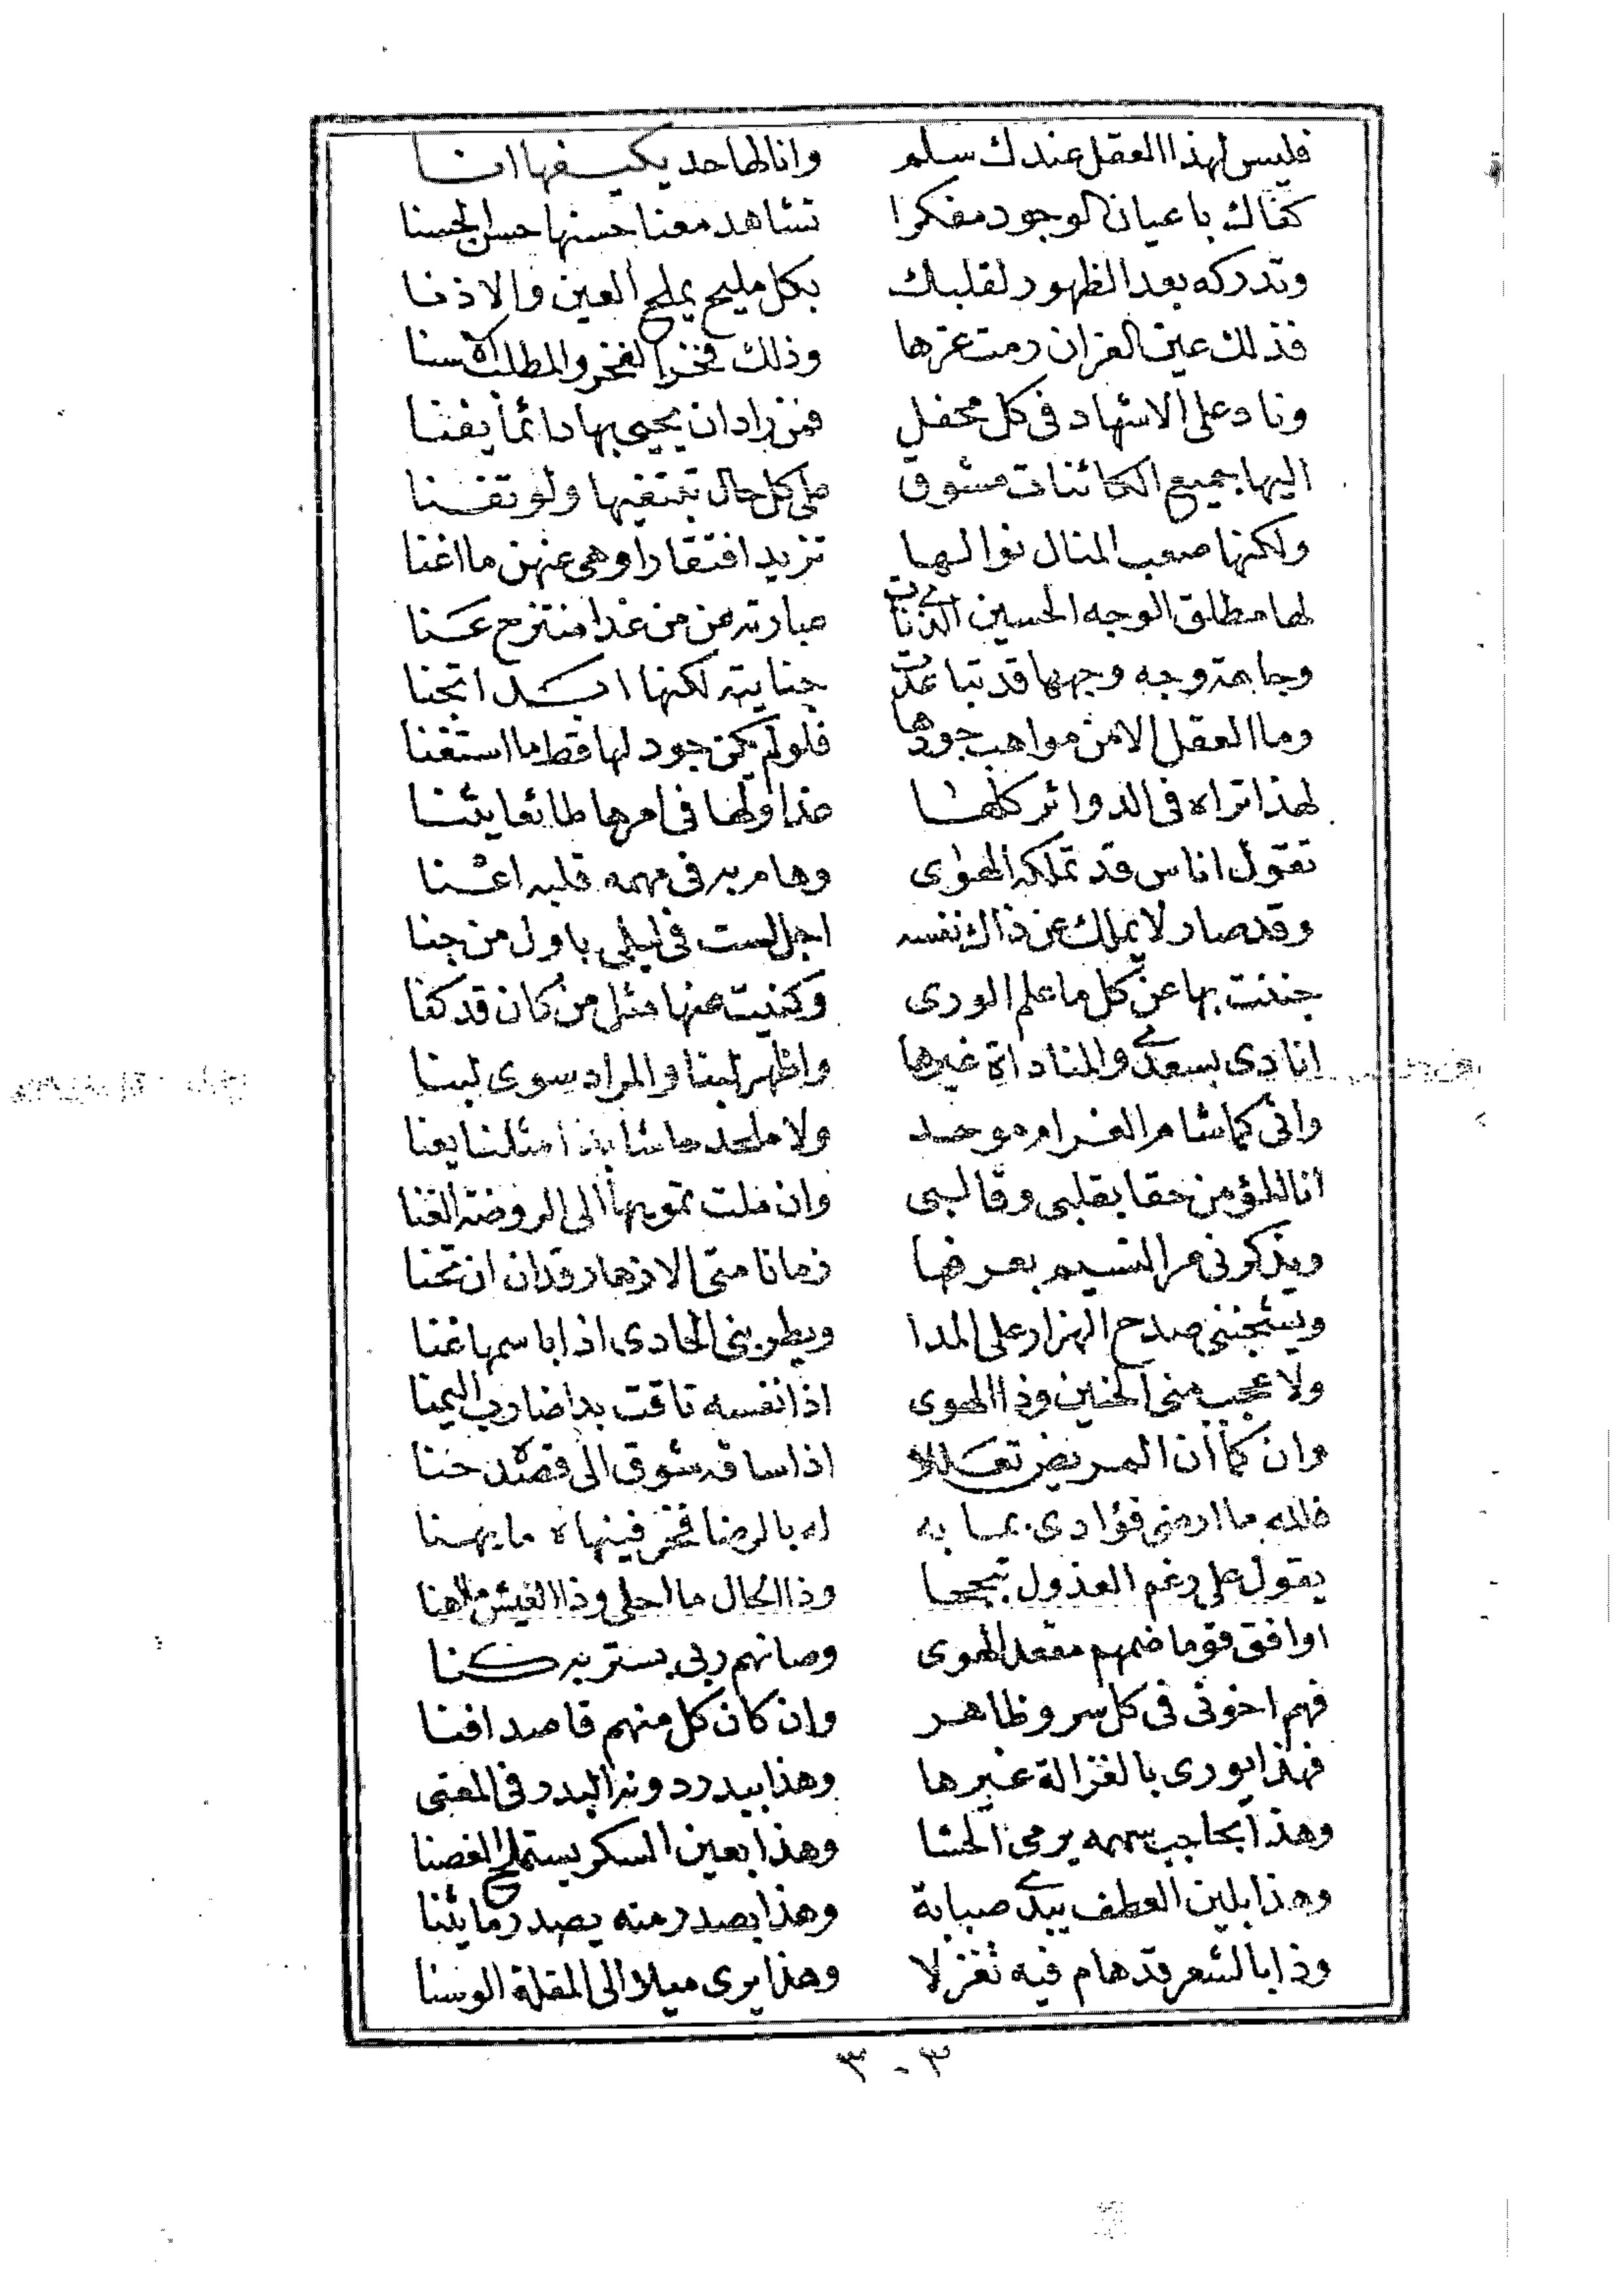 فليس لهذا العقل عندك سلم وانا لها حد يكيفها انا
كفاك باعيان الوجود مفكرا تشاهد معنا حسنها حسن الحسنا
وتدركه بعد الظهور لقلبك بكل مليح يملح العين والاذنا
فذلك عين العز ان رمت عزها وذلك فخر الفخر والمطلب الاسنا
وناد على الاشهاد في كل محفل فمن راد ان يحيى بها دائما يفنا
اليها جميع الكائنات مشوق على كل حال تبتغيها ولو تفنا
ولكنها صعب المنال نوالها تزيد افتقارا وهي عنهن ما اغنا
لها مطلق الوجه الحسين الذي نات عبارته عن من غدا منتزح عنا
وجاهة وجه وجهها قد تباعدت جنايته لكنها ابدا تجنا
وما العقل الا من مواهب جودها فلو لم يكن جود لها قط ما استغنا
لهذا تراه في الدوائر كلها غدا ولها في امرها طائعا يثنا
تقول اناس قد تملكه الهوى وهام به في مهمه قلبه اعنا
وقد صار لا يملك عن ذاك نفسه اجل لست في ليلى باول من جنا
جننت بها عن كل ما علم الورى وكنيت عنها مثل من كان قد كنا
انادي بسعدي والمناداة غيرها واظهر لبنا والمراد سوى لبنا
واني كما شاء الغرام موحد ولا ملحد حاشا بذا مثلنا يعنا
انا المؤمن حقا بقلبي وقالبي وان ملت تمويها الى الروضة الغنا
ويذكرني مر النسيم بعرضها زمانا متى الازهار قد ان ان تجنا
ويستجنني صدح الهزار على المدا ويطربني الحادي اذا باسمها غنا
ولا عجب مني الحنين وذا الهوى اذا نفسه تاقت بداضارب اليمنا
وان كما ان المريض تعللا اذا ساقه شوق الى قصده حنا
فلله ما ارضى فؤادي بما به له بالرضا فخر فينهاه ما يهنا
يقول على رغم العذول تبجحا وذا الحال ما احلى وذا العيش ما اهنا
اوافق قوما ضمهم مقعد الهوى وصانهم ربي بستر به كنا
فهم اخوتي في كل سر وظاهر وان كان كل منهم قاصدا فنا
فهذا يوري بالغزالة غيرها وهذا ببدر دونه البدر في المعنى
وهذا بحاجب سهمه يرمي الحشا وهذا بعين السكر يستملح الغصنا
وهذا بلين العطف يبدي صبابة وهذا بصدر منه يصدر ما يثنا
وذا بالشعر قد هام فيه تغزلا وهذا يرى ميلا الى المقلة الوسنا
٣-٣